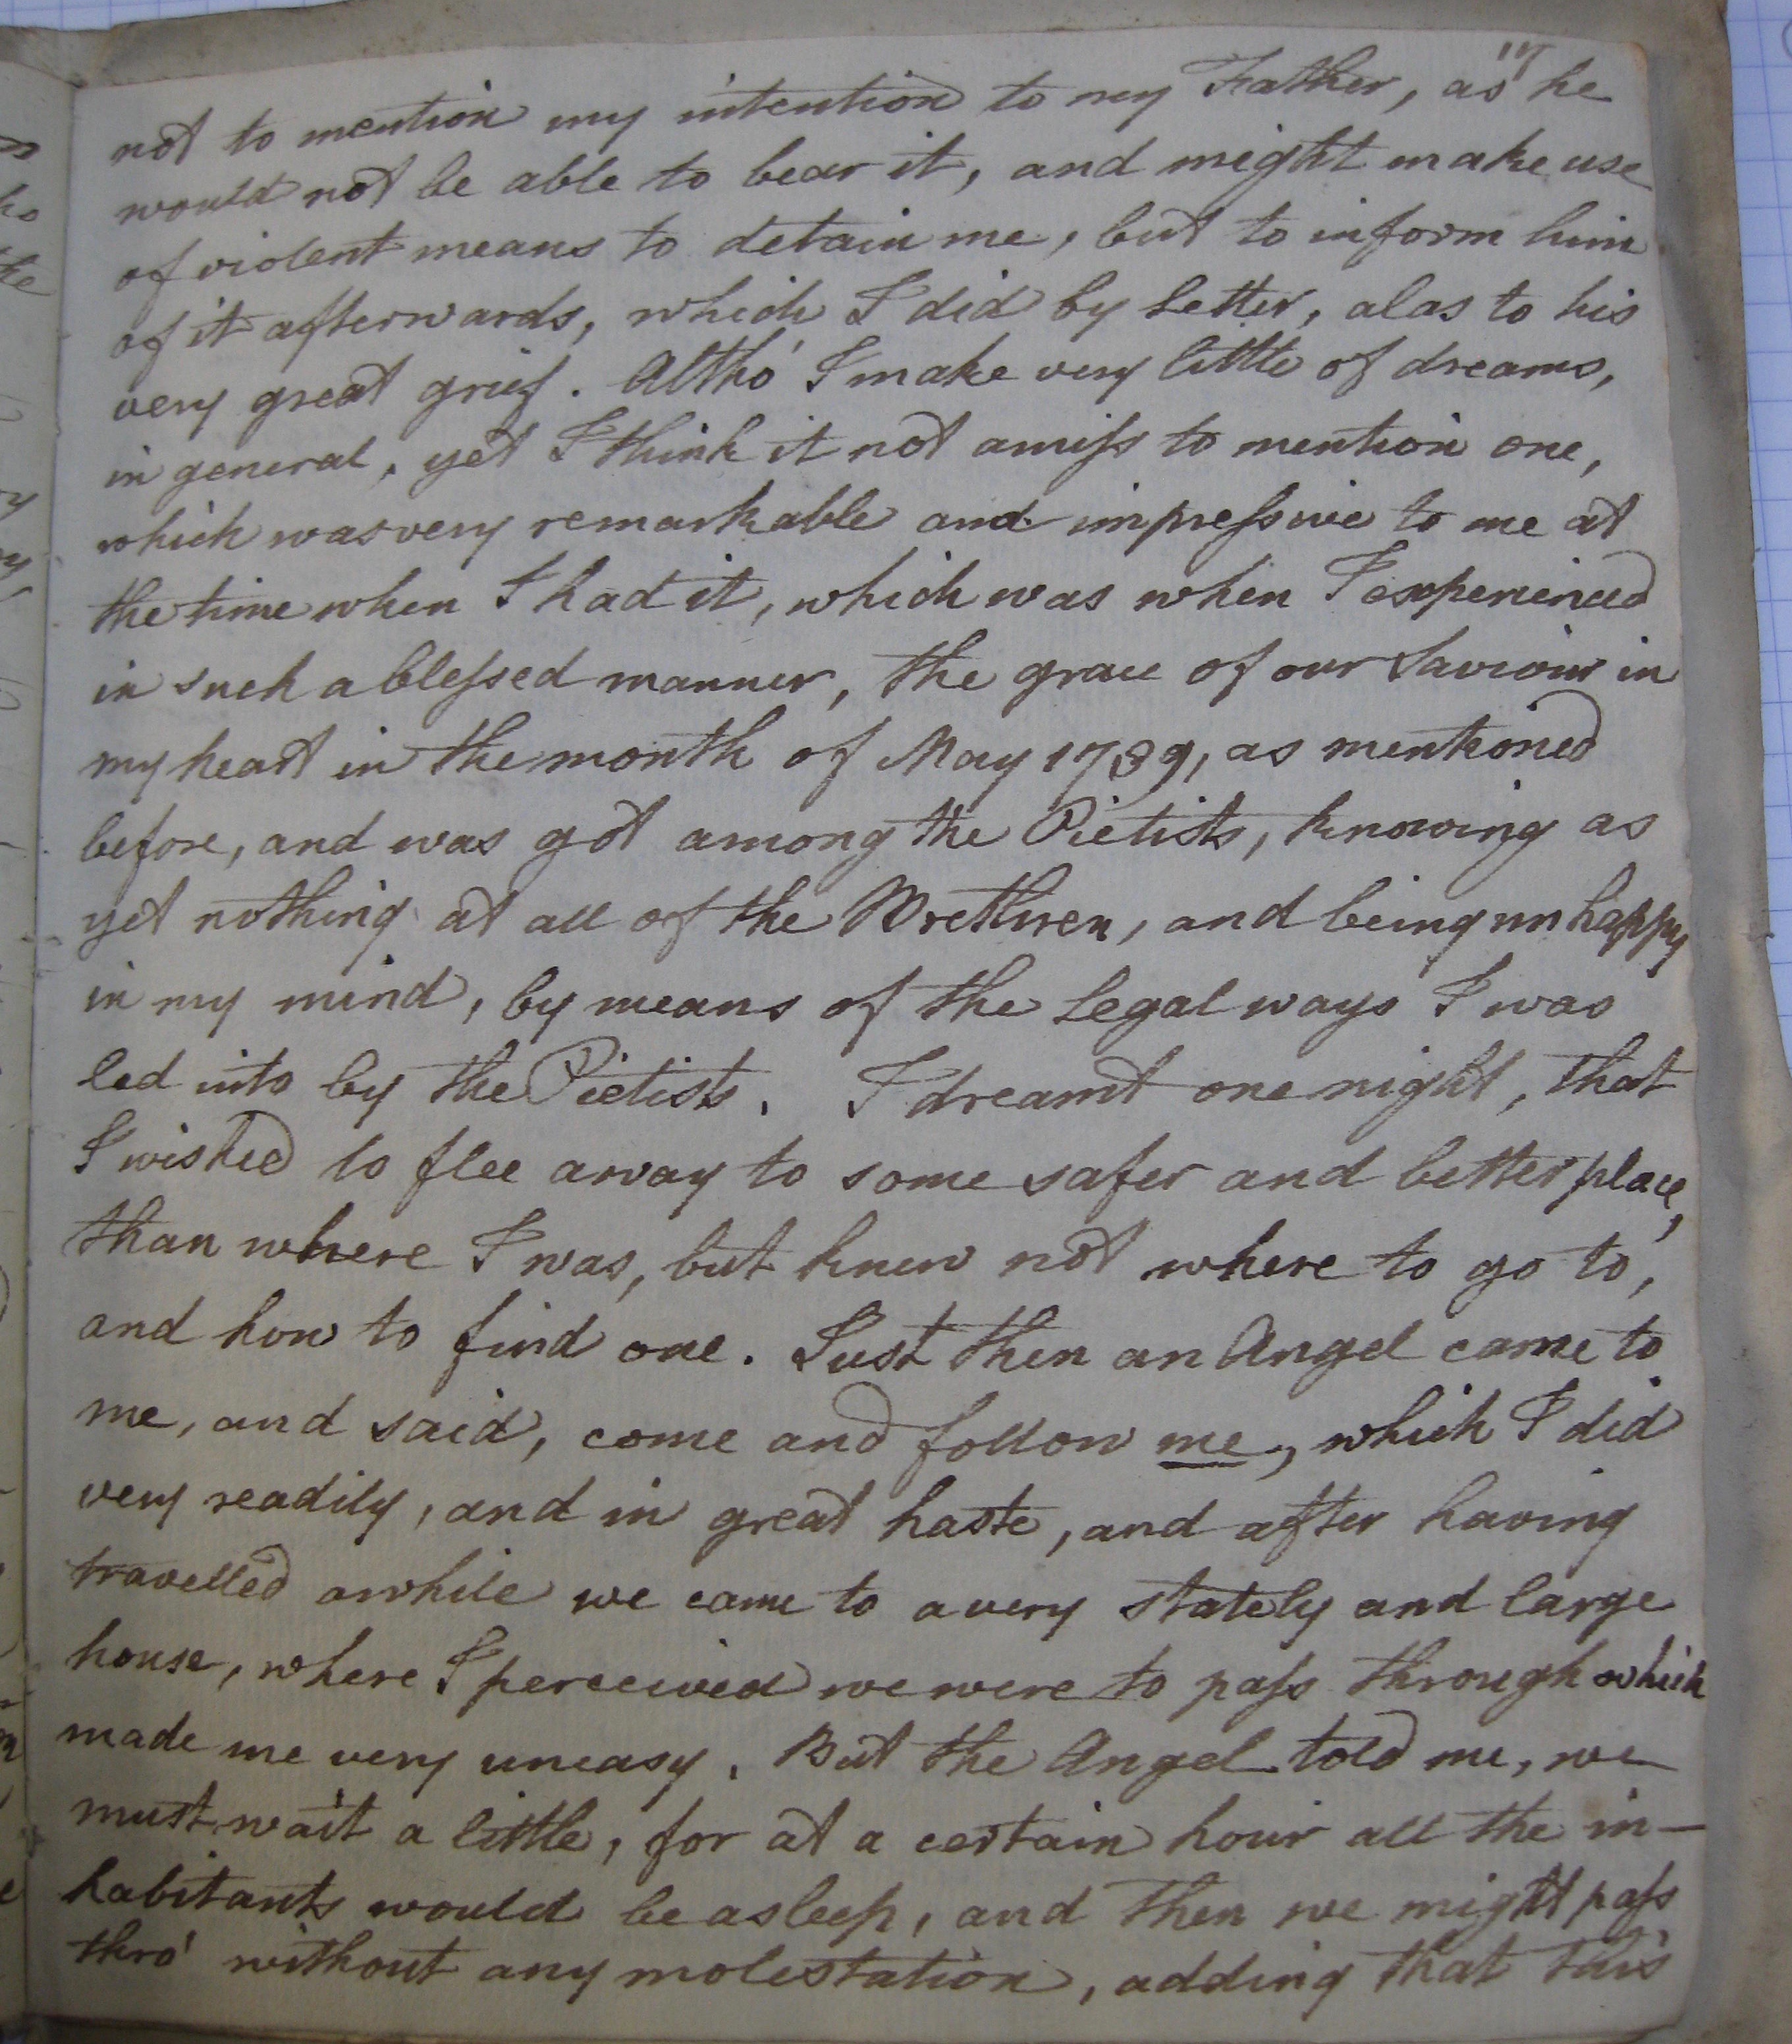 not to mention my intention to my Father, as he
would not be able to bear it, and might make use
of violent means to detain me, but to inform him
of it afterwards, which I did by Letter, alas to his
very great grief. Altho' I make very little of dreams,
in general, yet I think it not amiſs to mention one,
which was very remarkable and impreſsive to me at
the time when I had it, which was when I experienced
in such a bleſsed manner, the grace of our Saviour in
my heart in the month of May 1739, as mentioned
before, and was got among the Pietists, knowing as
yet nothing at all of the Brethren, and being unhappy
in my mind, by means of the Legal ways I was
led into by the Pietists. I dreamt one night, that
I wished to flee away to some safer and better place,
than where I was, but knew not where to go to,
and how to find one. Just then an Angel came to
me, and said, come and follow me, which I did
very readily, and in great haste, and after having
travelled awhile we came to a very stately and large
house, where I perceived we were to paſs through which
made me very uneasy. But the Angel told me, we
must wait a little, for at a certain hour all the in-
habitants would be asleep, and then we might paſs
thro' without any molestation, adding that this